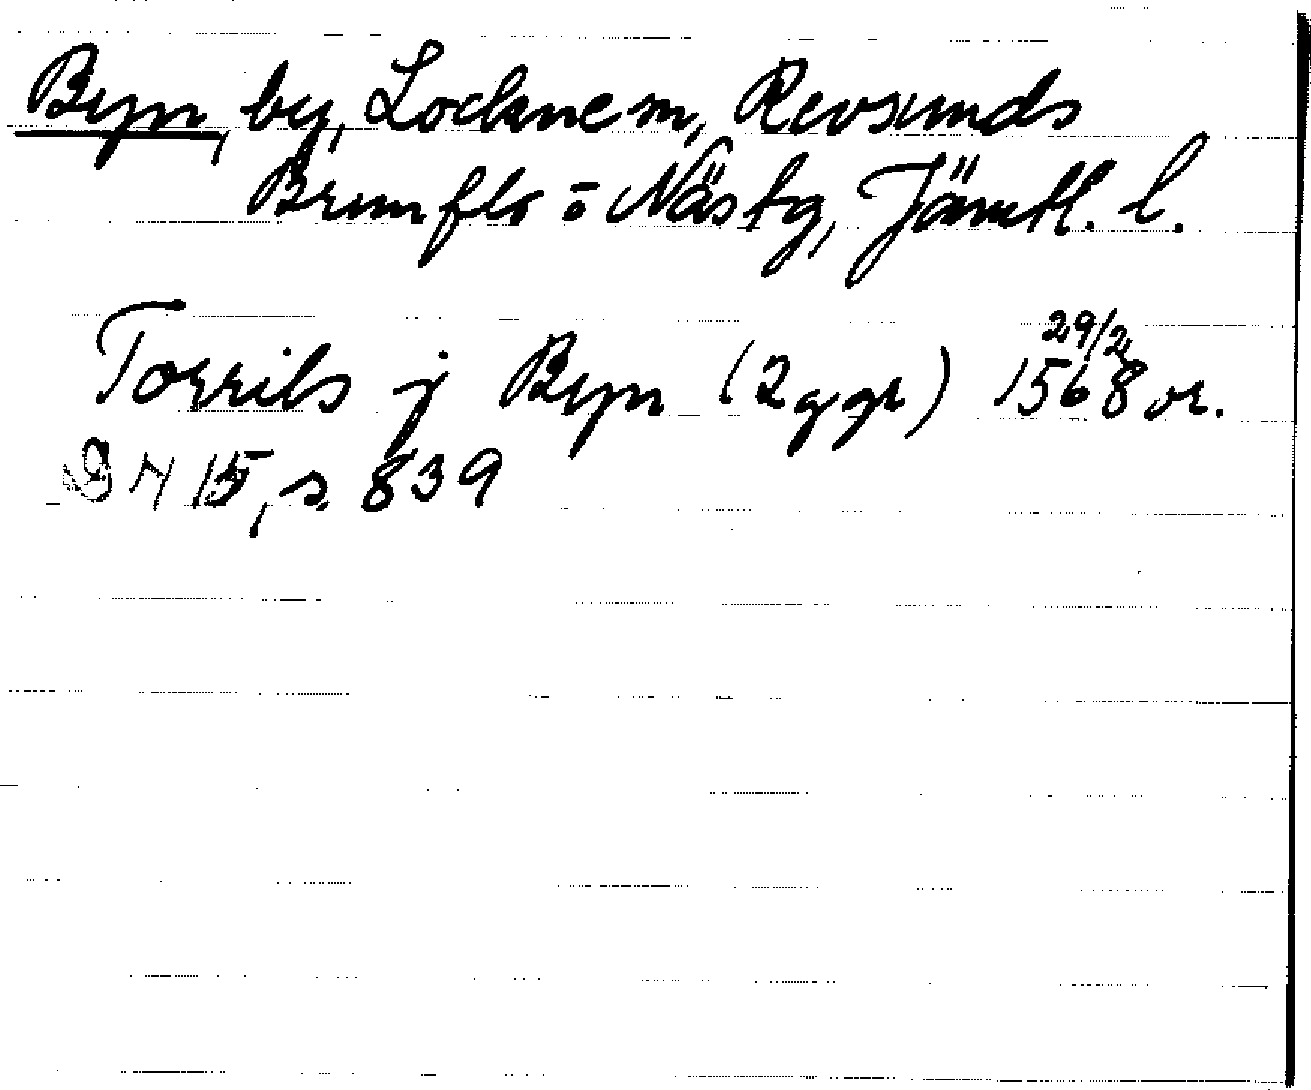 Byn, by, Lockne sn, Revsunds
Brunflo o Näs tg, Jämtl. l.
Torrils j Byn (2 ggr) 29/2 1568 or.
15, s 839